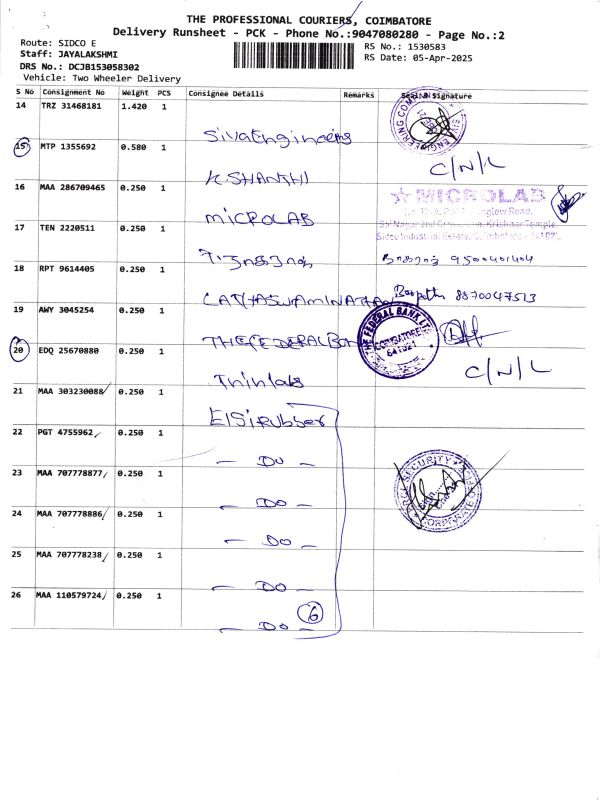 THE PROFESSIONAL COURIERS, COIMBATORE
Delivery Runsheet - PCK - Phone No.:9047080280 - Page No.:2
Route: SIDCO E
Staff: JAYALAKSHMI
DRS No.: DCJB153058302
Vehicle: Two Wheeler Delivery
RS No.: 1530583
RS Date: 05-Apr-2025
S No Consignment No Weight PCS Consignee Details Remarks Seal & Signature
14 TRZ 31468181 1.420 1 Siva Engineers
15 MTP 1355692 0.580 1 K SHANTHI C/N/L
16 MAA 286709465 0.250 1 MICROLAB MICROLAB
17 TEN 2220511 0.250 1 நாகராஜ் 9500401404
18 RPT 9614405 0.250 1 8870047513
19 AWY 3045254 0.250 1 THE FEDERAL BANK THE FEDERAL BANK LTD COIMBATORE 641021
20 EDQ 25670880 0.250 1 Thinlab C/N/L
21 MAA 303230088 0.250 1 Elsi Rubber
22 PGT 4755962 0.250 1 — DO —
23 MAA 707778877 0.250 1 — DO —
24 MAA 707778886 0.250 1 — DO —
25 MAA 707778238 0.250 1 — DO —
26 MAA 110579724 0.250 1 — DO — 6
SECURITY
CORPORATE